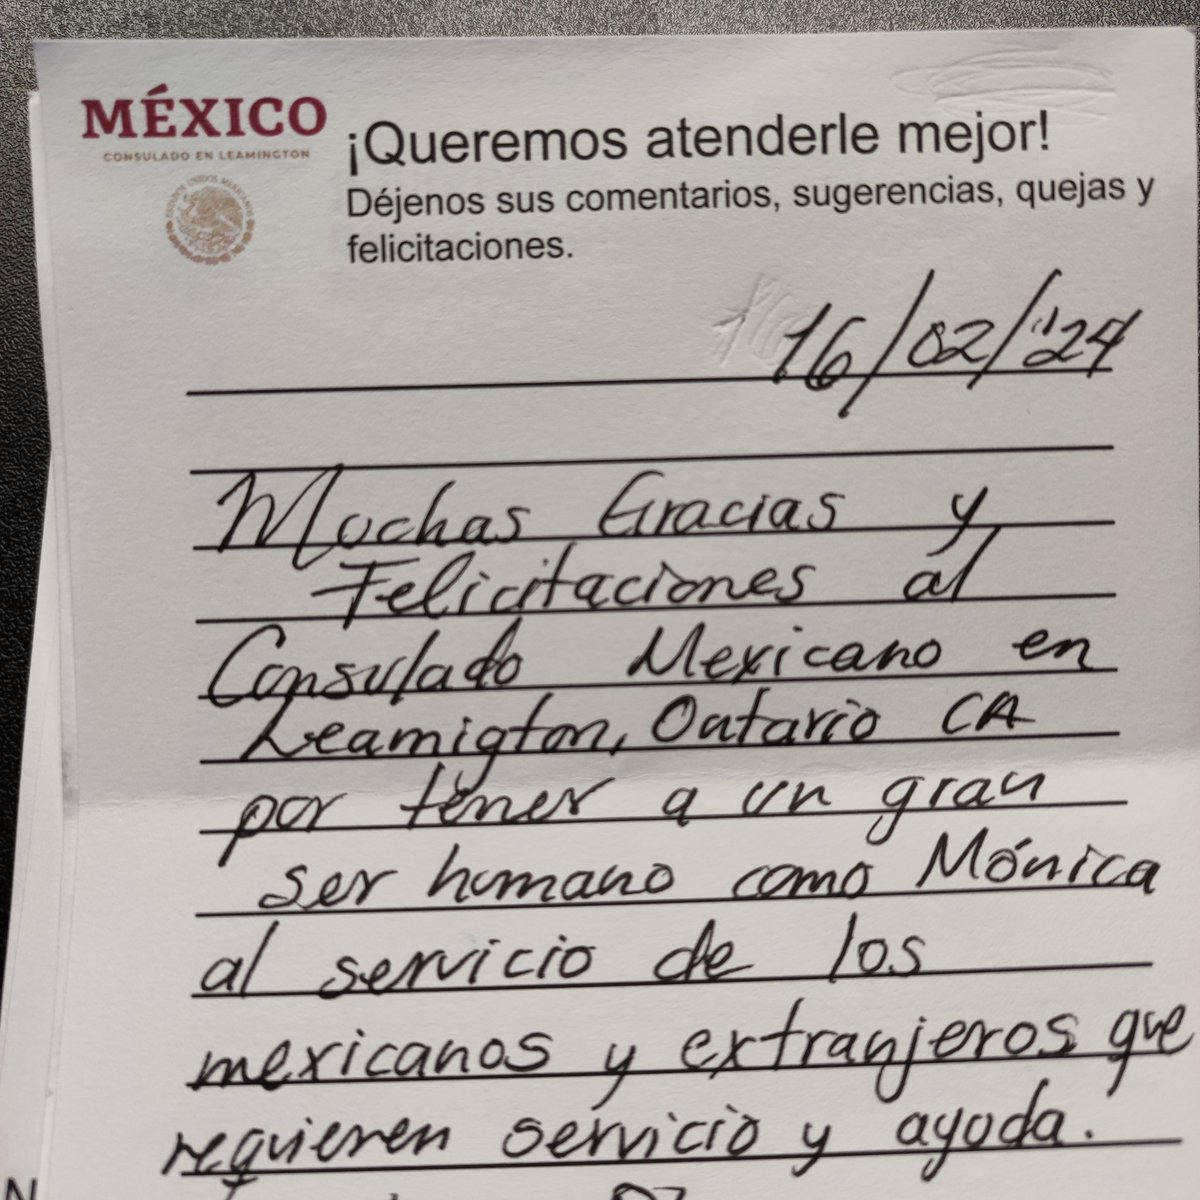 MÉXICO
CONSULADO EN LEAMINGTON
¡Queremos atenderle mejor!
Déjenos sus comentarios, sugerencias, quejas y
felicitaciones.
16/02/'24
Muchas Gracias y
Felicitaciones al
Consulado Mexicano en
Leamigton, Ontario CA
por tener a un gran
ser humano como Mónica
al servicio de los
mexicanos y extranjeros que
requieren servicio y ayuda.